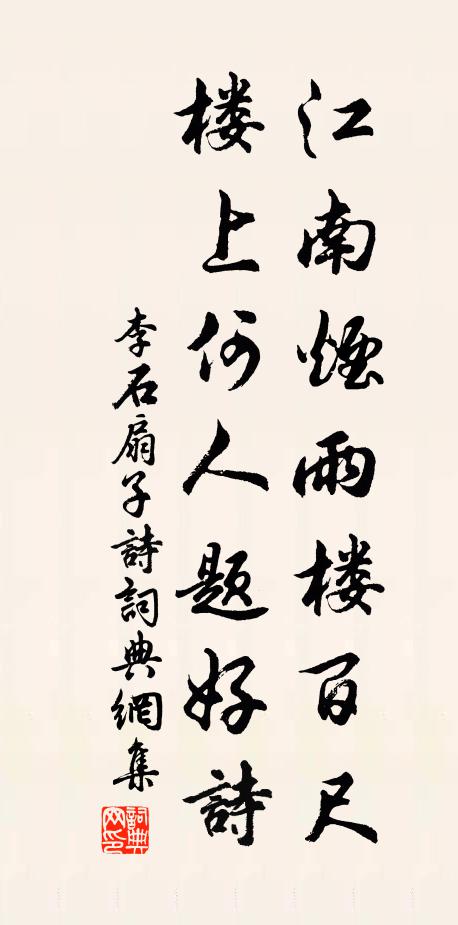 江南煙雨楼百尺
楼上何人題好詩
李石扇子詩詞典網集
詞典网印